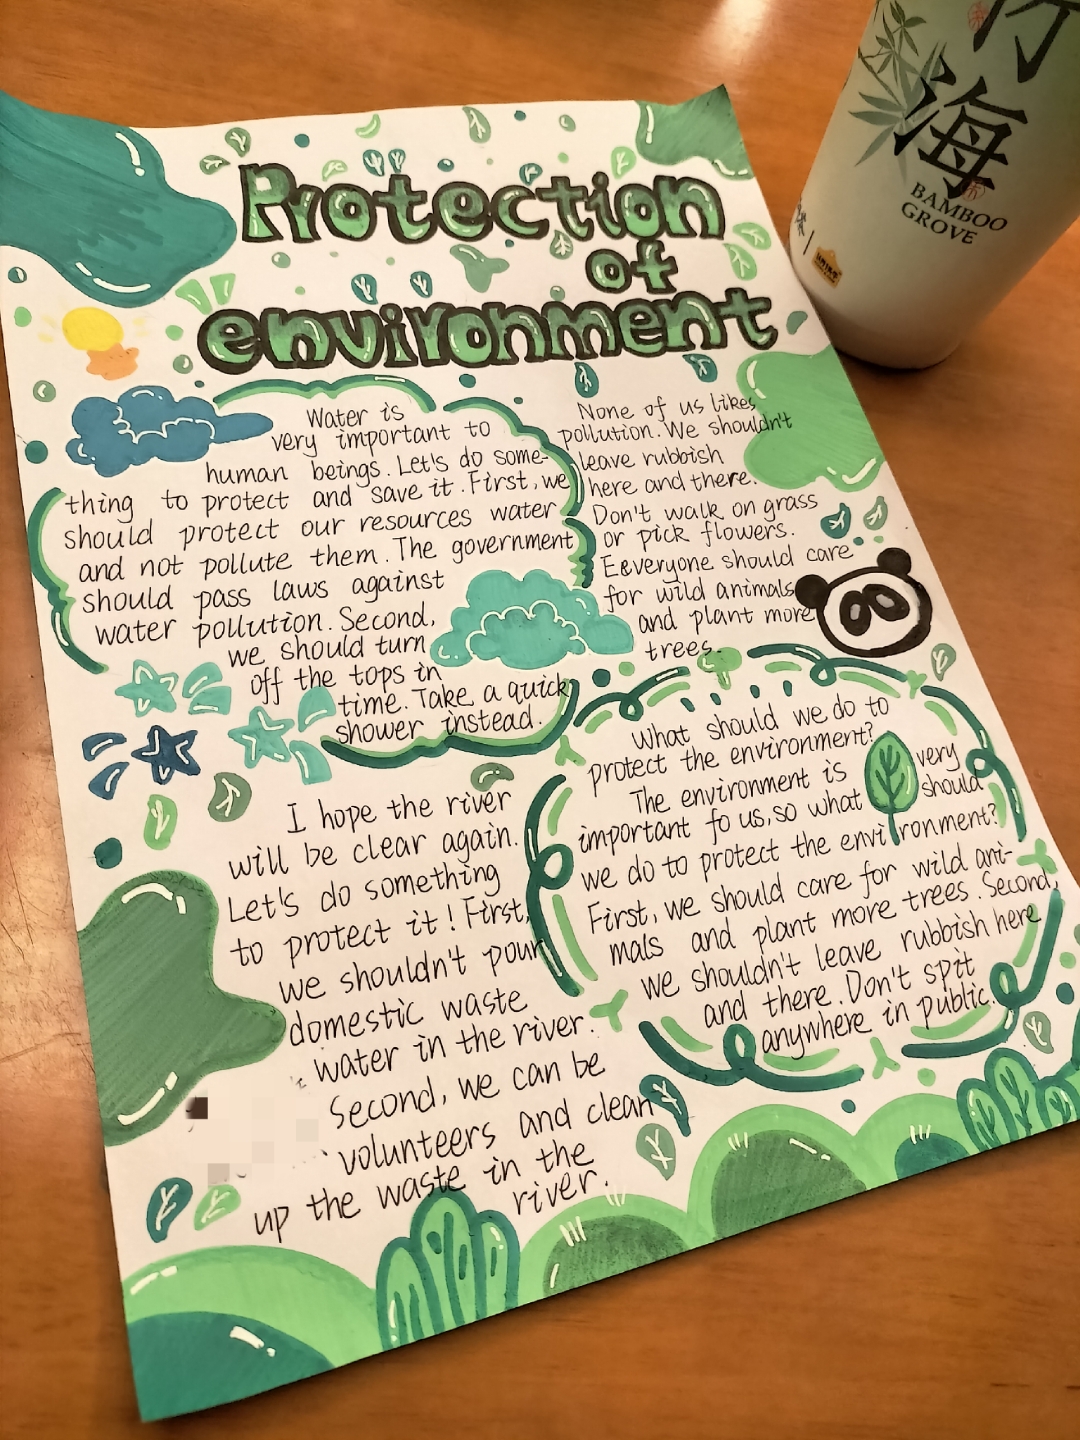 Protection
of
environment
Water is
very important to
human beings. Let's do some-
thing to protect and save it. First, we
should protect our resources water
and not pollute them. The government
should pass laws against
water pollution. Second,
we should turn
off the tops in
time. Take a quick
shower instead.
None of us likes
pollution. We shouldn't
leave rubbish
here and there.
Don't walk on grass
or pick flowers.
Eeveryone should care
for wild animals
and plant more
trees.
I hope the river
will be clear again.
Let's do something
to protect it! First,
we shouldn't pour
domestic waste
water in the river.
Second, we can be
volunteers and clean
up the waste in the
river.
What should we do to
protect the environment?
The environment is very
important to us, so what should
we do to protect the environment?
First, we should care for wild ani-
mals and plant more trees. Second,
we shouldn't leave rubbish here
and there. Don't spit
anywhere in public.
竹
海
BAMBOO
GROVE